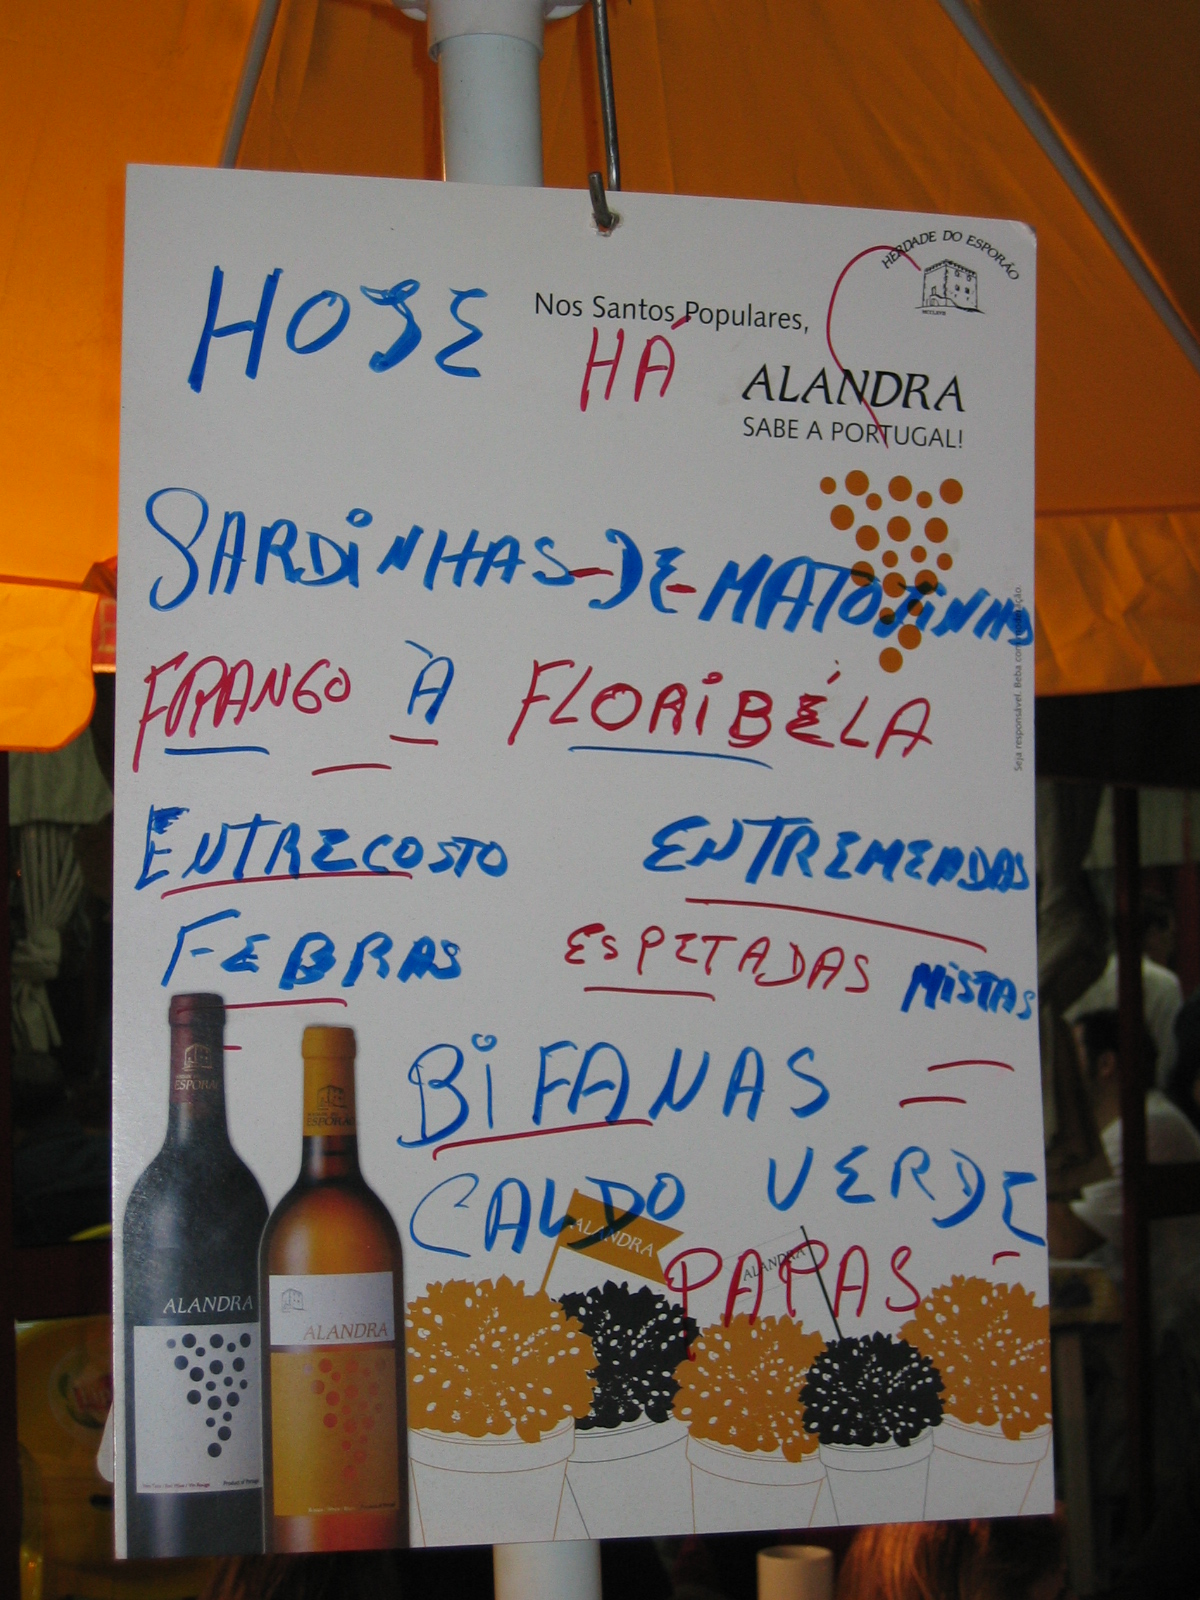 HERDADE DO ESPORÃO
HOJE
Nos Santos Populares,
HÁ
ALANDRA
SABE A PORTUGAL!
SARDINHAS-DE-MATOZINHOS
FRANGO À FLORIBÉLA
Seja responsável. Beba com moderação.
ENTRECOSTO ENTREMEADAS
FEBRAS ESPETADAS MISTAS
BIFANAS
CALDO VERDE
PAPAS
ALANDRA
ALANDRA
ESPORÃO
ESPORÃO
ALANDRA
ALANDRA